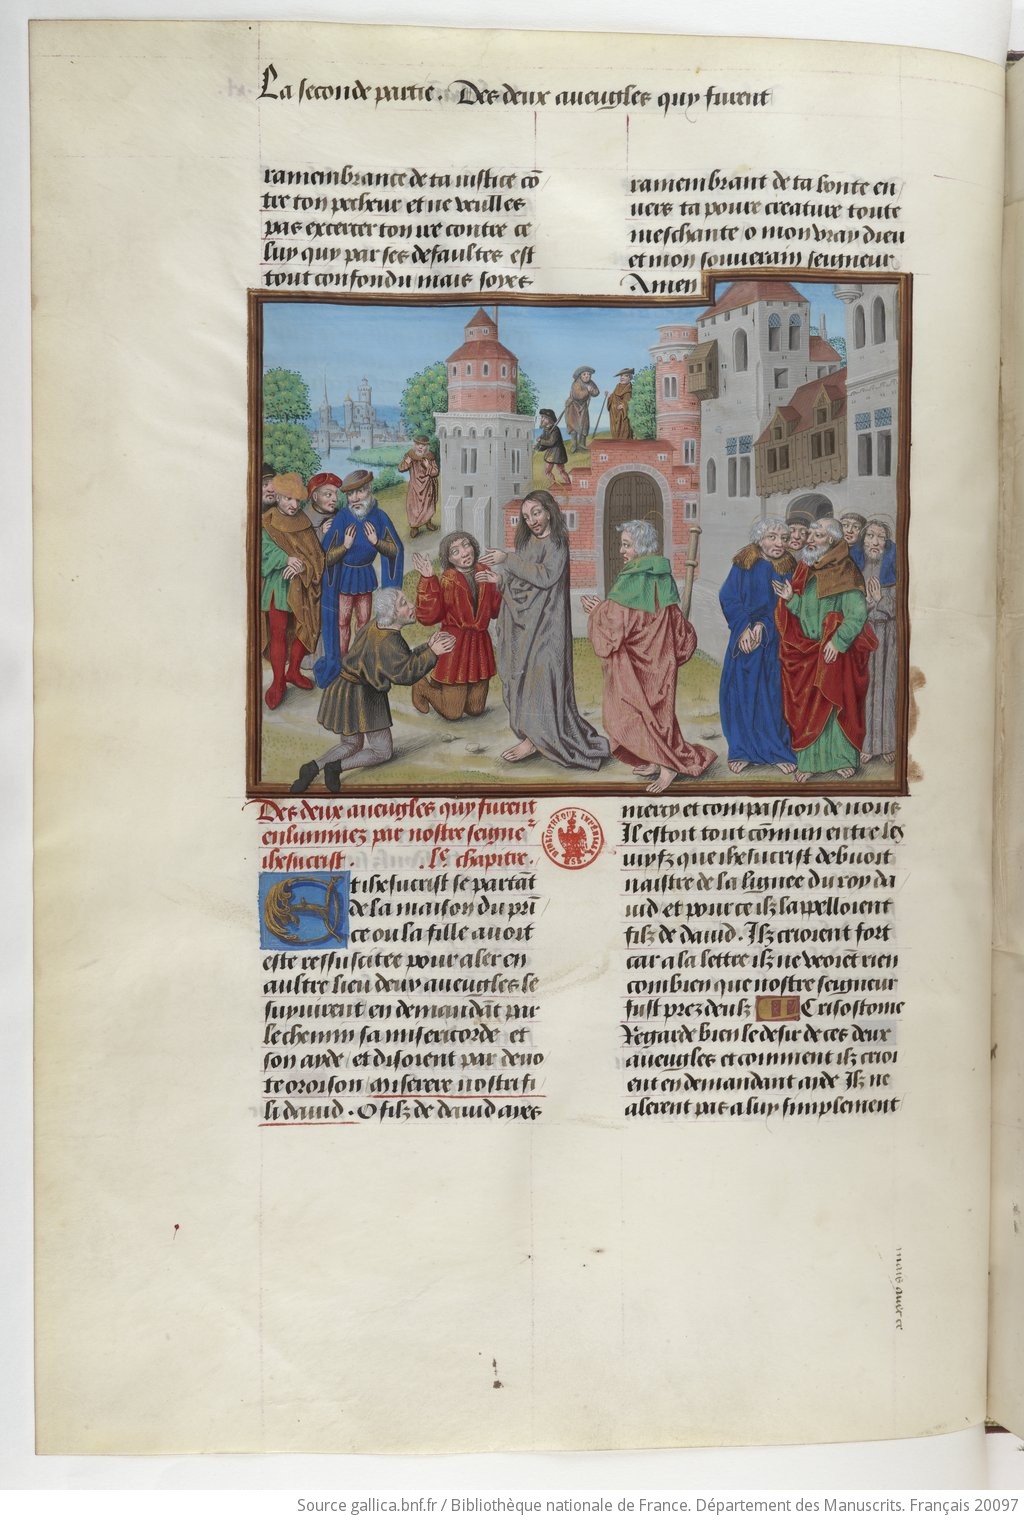 La seconde partie. Des deux aueugles quy furent
ramembrance de ta iustice cō
tre ton pecheur et ne veulles
pas excercer ton ire contre ce
luy quy par ses defaultes est
tout confondu mais soyes
ramembrant de ta bonte en
uers ta poure creature toute
meschante o mon vray dieu
et mon souuerain seigneur
Amen
Des deux aueugles quy furent
enluminez par nostre seigne
ihesucrist. .lᵉ. chapitre.
Et ihesucrist se partāt
de la maison du prī
ce ou la fille auoit
este ressuscitee pour aler en
aultre lieu deux aueugles le
suyuirent en demandāt par
le chemin sa misericorde et
son ayde / et disoient par deuo
te oroison / Miserere nostri fi
li dauid. O filz de dauid ayes
mercy et compassion de nous
Il estoit tout cōmun entre les
iuyfz que ihesucrist debuoit
naistre de la lignee du roy da
uid / et pour ce ilz lappelloient
filz de dauid. Ilz crioient fort
car a la lettre ilz ne veoiēt rien
combien que nostre seigneur
fust prez deulz Crisostome
Regarde bien le desir de ces deux
aueugles et comment ilz crioi
ent en demandant ayde Ilz ne
alerent pas a luy simplement
mais auec ce
BIBLIOTHÈQUE IMPÉRIALE
MSS.
Source gallica.bnf.fr / Bibliothèque nationale de France. Département des Manuscrits. Français 20097